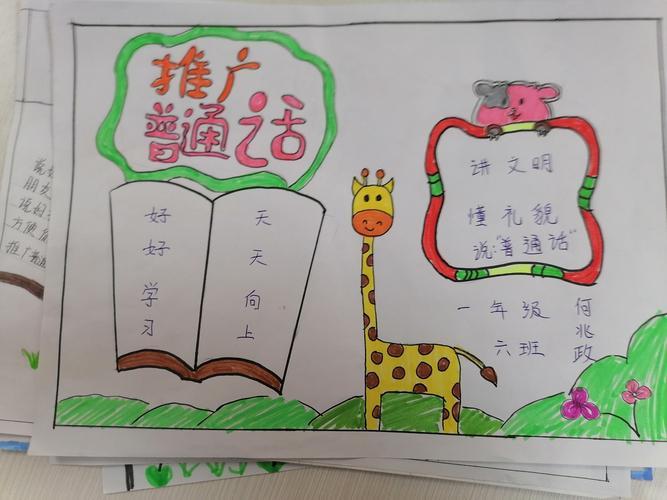 推广
普通话
好好学习
天天向上
讲文明
懂礼貌
说:"普通话"
一年级
六班
何兆政
说好
朋友
说好
方便
推广普通